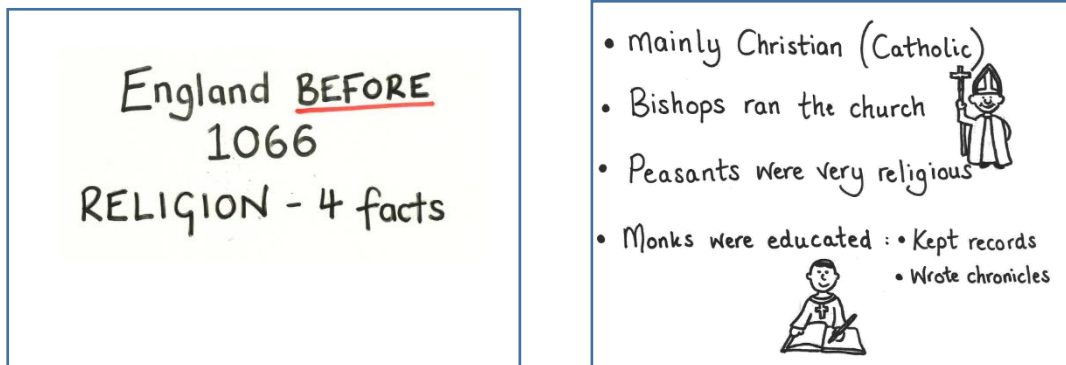 England BEFORE
1066
RELIGION - 4 facts
• Mainly Christian (Catholic)
• Bishops ran the church
• Peasants were very religious
• Monks were educated : • Kept records
• Wrote chronicles